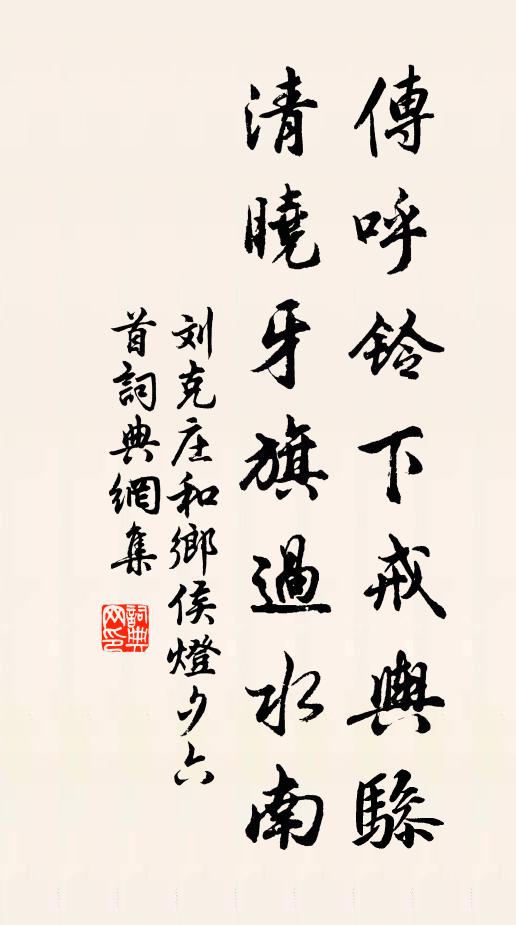 傳呼鈴下戒輿驂
清曉牙旗過水南
刘克庄和鄉侯燈夕六
首詞典網集
詞典
网印